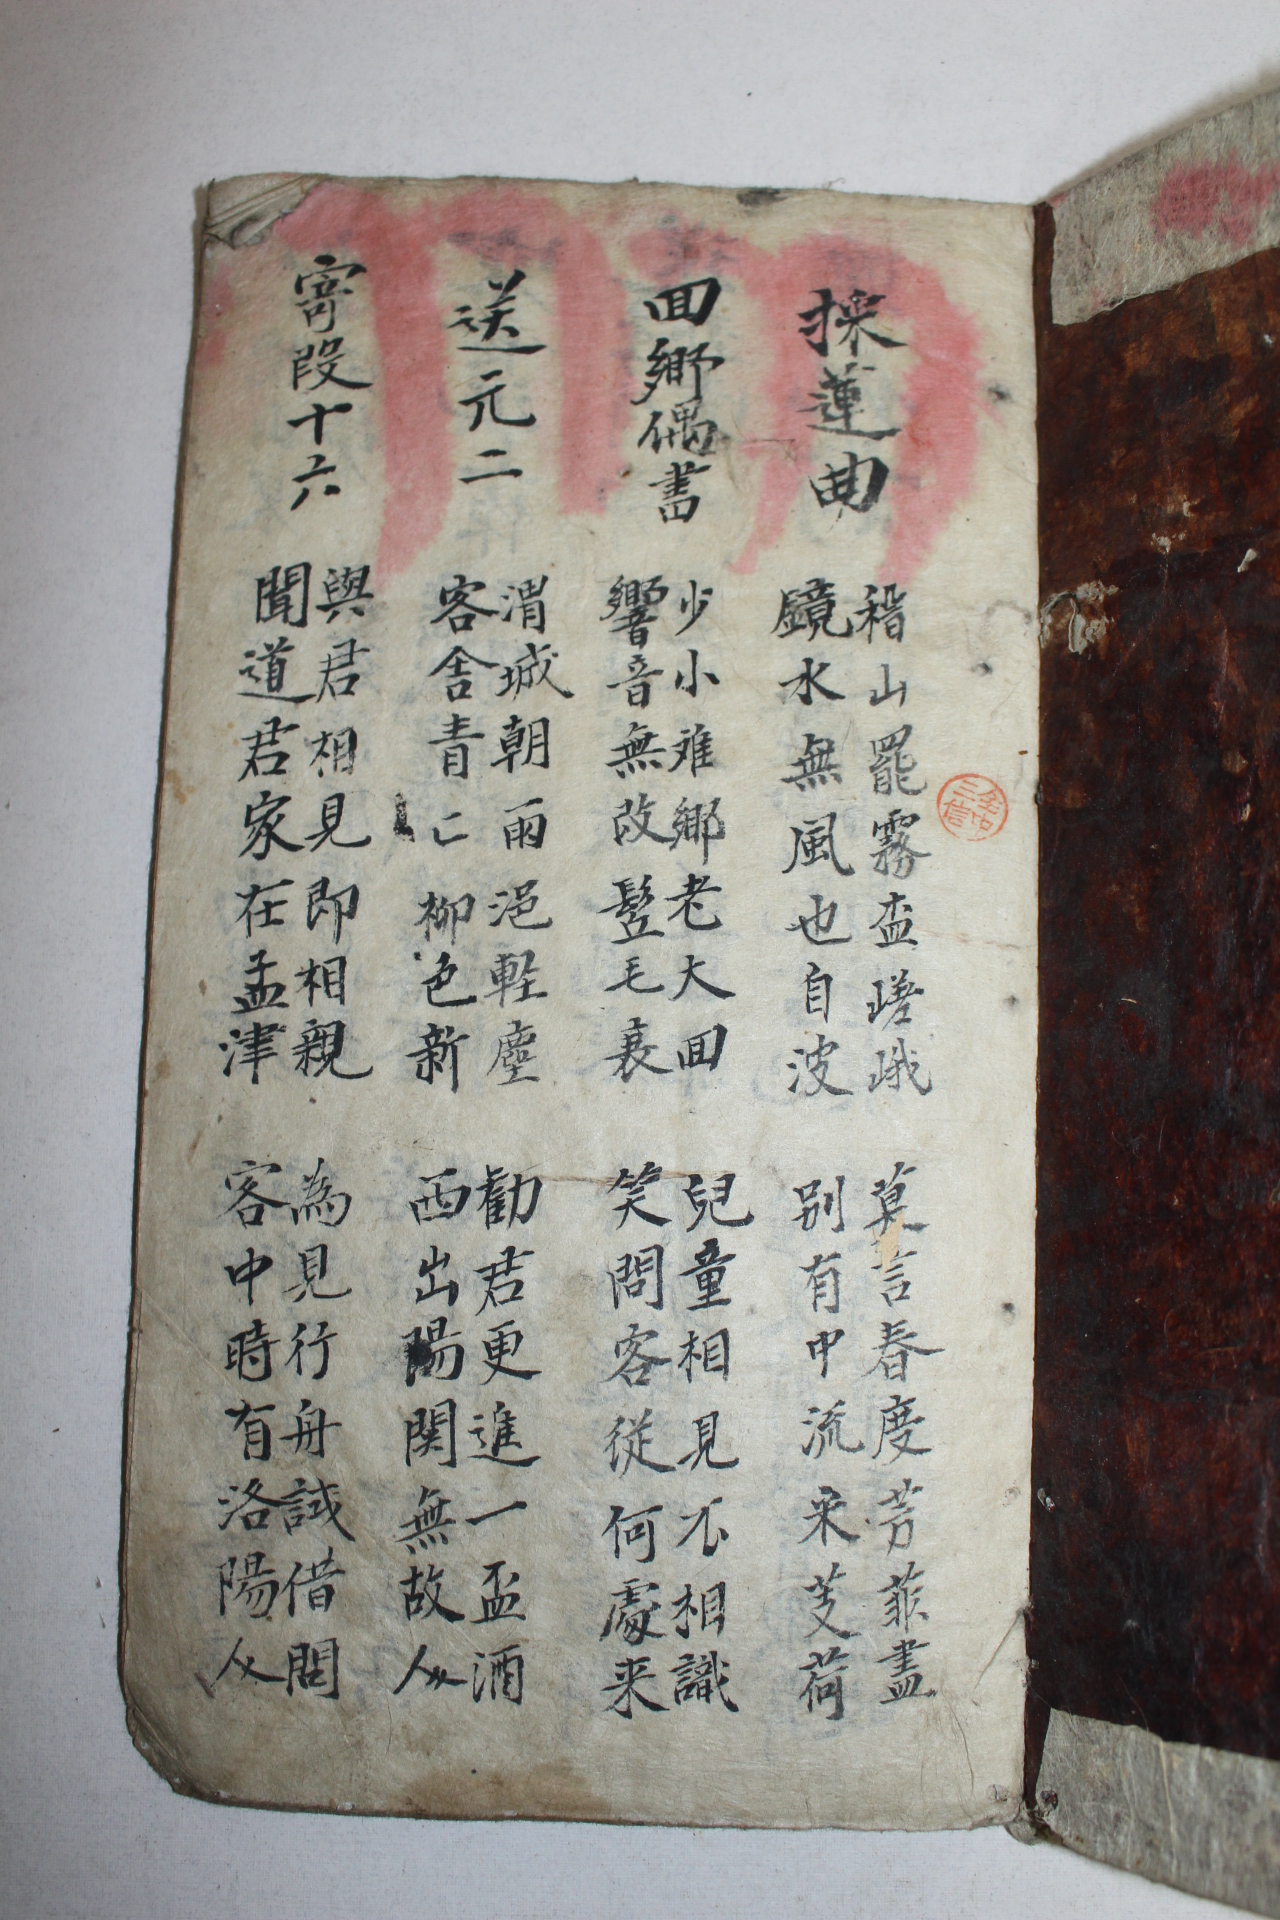 採蓮曲
稽山罷霧盃嵯峨
鏡水無風也自波
莫言春度芳菲盡
別有中流采芰荷
回鄉偶書
少小难鄉老大回
響音無改髩毛衰
兒童相見不相識
笑問客從何處来
送元二
渭城朝雨浥軽塵
客舍青〻柳色新
勸君更進一盃酒
西出陽関無故人
寄段十六
與君相見即相親
聞道君家在孟津
為見行舟試借問
客中時有洛陽人